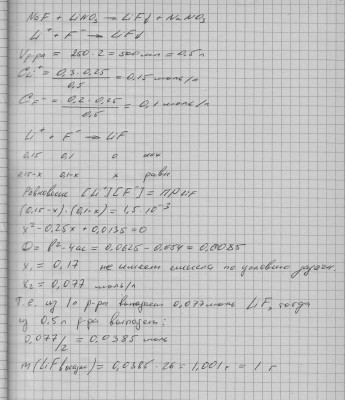 NaF + LiNO₃ → LiF↓ + NaNO₃
Li⁺ + F⁻ → LiF↓
Vр-ра = 250·2 = 500 мл = 0,5 л
C Li⁺ = 0,3·0,25 / 0,5 = 0,15 моль/л
C F⁻ = 0,2·0,25 / 0,5 = 0,1 моль/л
Li⁺ + F⁻ → LiF
0,15 0,1 0 исх
0,15-x 0,1-x x равн
Равновесие [Li⁺][F⁻] = ПР LiF
(0,15-x)·(0,1-x) = 1,5·10⁻³
x²-0,25x+0,0135=0
D = b²-4ac = 0,0625-0,054 = 0,0085
x₁ = 0,17 не имеет смысла по условию задачи
x₂ = 0,077 моль/л
Т.е. из 1л р-ра выпадает 0,077 моль LiF, тогда
из 0,5 л р-ра выпадает:
0,077/2 = 0,0385 моль
m(LiF) = 0,0385·26 = 1,001 г = 1 г